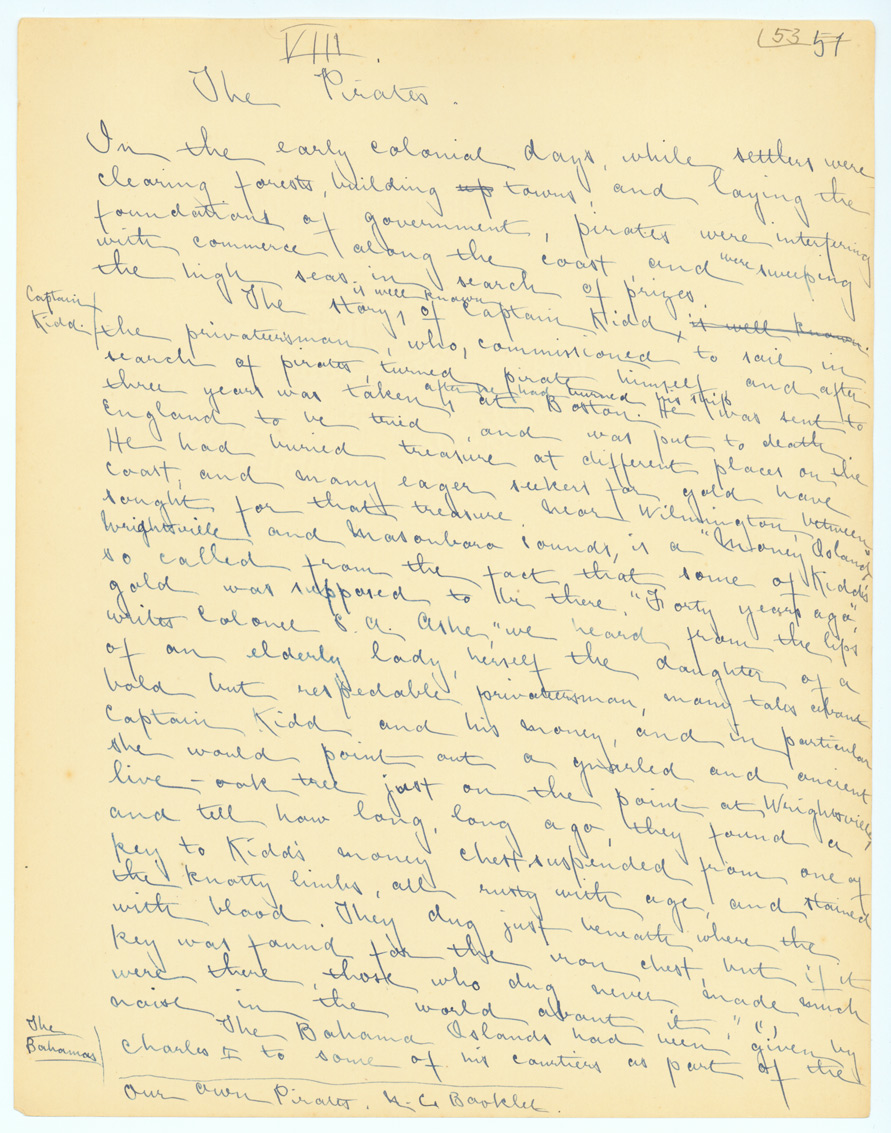 VIII.
(53 51
The Pirates.
In the early colonial days, while settlers were
clearing forests, building up towns, and laying the
foundations of government, pirates were interfering
with commerce along the coast, and were sweeping
the high seas in search of prizes.
is well known
The story, of Captain Kidd, is well known.
Captain
Kidd.
the privateersman, who, commissioned to sail in
search of pirates, turned pirate himself and after
three years was taken, after he had burned his ship at Boston. He was sent to
England to be tried, and was put to death.
He had buried treasure at different places on the
coast, and many eager seekers for gold have
sought for that treasure. Near Wilmington, between
Wrightsville and Masonboro sounds, is a "Money Island"
so called from the fact that some of Kidd's
gold was supposed to be there. "Forty years ago",
writes Colonel S. A. Ashe, "we heard from the lips
of an elderly lady, herself the daughter of a
bold but respectable privateersman, many tales about
Captain Kidd and his money, and in particular
she would point out a gnarled and ancient
live-oak tree just on the point at Wrightsville,
and tell how long, long ago, they found a
key to Kidd's money chest suspended from one of
the knotty limbs, all rusty with age, and stained
with blood. They dug just beneath where the
key was found for the iron chest, but if it
were there, those who dug never made much
noise in the world about it."
The
Bahamas
The Bahama Islands had been given by
Charles I to some of his courtiers as part of the
Our Own Pirates. N. C. Booklet.